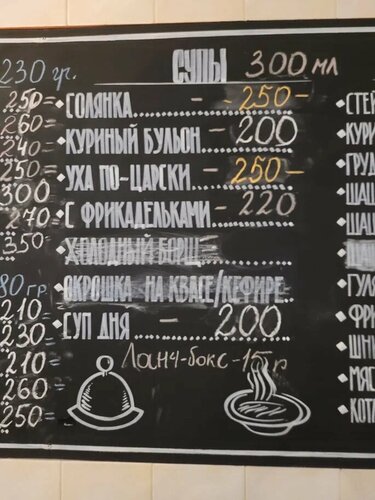 230 гр.
250=
260=
240=
250=
300
270
350=
80 гр.
210=
230=
210
260=
250=
СУПЫ 300 мл
СОЛЯНКА - -250-
КУРИНЫЙ БУЛЬОН - 200
УХА ПО-ЦАРСКИ - 250-
С ФРИКАДЕЛЬКАМИ - 220
ХОЛОДНЫЙ БОРЩ
ОКРОШКА НА КВАСЕ/КЕФИРЕ
СУП ДНЯ - 200
Ланч-бокс-15 р